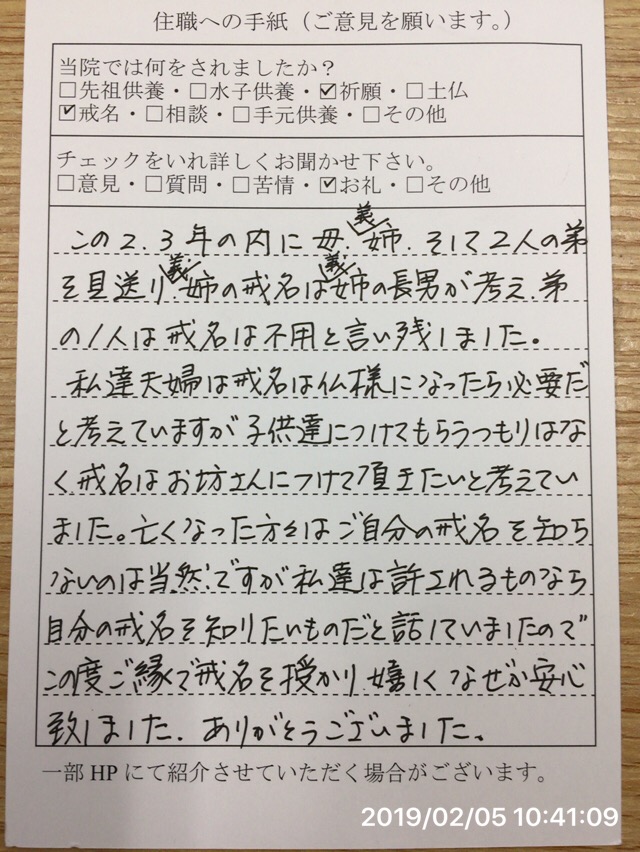 住職への手紙（ご意見を願います。）
当院では何をされましたか？
□先祖供養・□水子供養・☑祈願・□土仏
☑戒名・□相談・□手元供養・□その他
チェックをいれ詳しくお聞かせ下さい。
□意見・□質問・□苦情・☑お礼・□その他
この2.3年の内に母.義姉.そして2人の弟
を見送り.義姉の戒名は義姉の長男が考え.弟
の1人は戒名は不用と言い残しました。
私達夫婦は戒名は仏様になったら必要だ
と考えていますが子供達につけてもらうつもりはな
く.戒名はお坊さんにつけて頂きたいと考えてい
ました。亡くなった方々はご自分の戒名を知ら
ないのは当然ですが私達は許されるものなら
自分の戒名を知りたいものだと話していましたので
この度ご縁で戒名を授かり.嬉しくなぜか安心
致しました.ありがとうございました。
一部HPにて紹介させていただく場合がございます。
2019/02/05 10:41:09